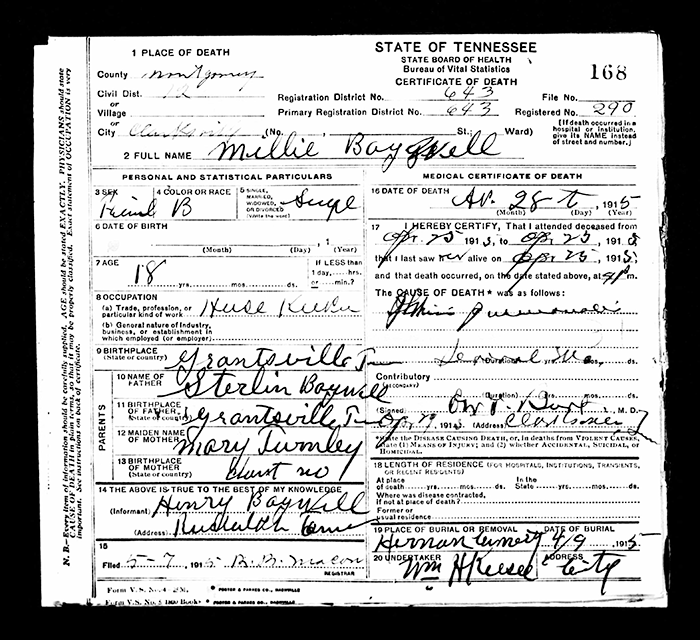 STATE OF TENNESSEE
STATE BOARD OF HEALTH
Bureau of Vital Statistics
CERTIFICATE OF DEATH
168
1 PLACE OF DEATH
County Montgomery
Civil Dist. 12
or
Village
or
City Clarksville (No. , St.; Ward)
Registration District No. 643 File No.
Primary Registration District No. 643 Registered No. 290
[If death occurred in a hospital or institution, give its NAME instead of street and number.]
2 FULL NAME Millie Baywell
PERSONAL AND STATISTICAL PARTICULARS
3 SEX
4 COLOR OR RACE B
5 SINGLE, MARRIED, WIDOWED, OR DIVORCED (Write the word)
6 DATE OF BIRTH
(Month) (Day) , 1 (Year)
7 AGE 18 yrs. mos. ds.
If LESS than 1 day, hrs. or min.?
8 OCCUPATION
(a) Trade, profession, or particular kind of work House Keeper
(b) General nature of Industry, business, or establishment in which employed (or employer)
9 BIRTHPLACE (State or country) Grantsville
PARENTS
10 NAME OF FATHER Sterlin Baywell
11 BIRTHPLACE OF FATHER (State or country) Grantsville
12 MAIDEN NAME OF MOTHER Mary Turnley
13 BIRTHPLACE OF MOTHER (State or country)
14 THE ABOVE IS TRUE TO THE BEST OF MY KNOWLEDGE
(Informant) Henry Baywell
(Address)
15
Filed 5-7, 1915 B. B. Macon
REGISTRAR
MEDICAL CERTIFICATE OF DEATH
16 DATE OF DEATH Ap. 28, 1915
(Month) (Day) (Year)
17 I HEREBY CERTIFY, That I attended deceased from
Apr. 25 1915, to Apr. 25, 191
that I last saw her alive on Apr 25, 1915
and that death occurred, on the date stated above, at m.
The CAUSE OF DEATH* was as follows:
(Duration) yrs. mos. ds.
Contributory
(SECONDARY)
(Duration) yrs. mos. ds.
(Signed) M. D.
Apr 29, 1915 (Address)
*State the DISEASE CAUSING DEATH, or, in deaths from VIOLENT CAUSES, state (1) MEANS OF INJURY; and (2) whether ACCIDENTAL, SUICIDAL, or HOMICIDAL.
18 LENGTH OF RESIDENCE (FOR HOSPITALS, INSTITUTIONS, TRANSIENTS, OR RECENT RESIDENTS)
At place of death yrs. mos. ds. In the State yrs. mos. ds.
Where was disease contracted, if not at place of death?
Former or usual residence
19 PLACE OF BURIAL OR REMOVAL DATE OF BURIAL
4/9 1915
20 UNDERTAKER ADDRESS
Wm H Reese City
N. B.—Every item of information should be carefully supplied. AGE should be stated EXACTLY. PHYSICIANS should state CAUSE OF DEATH in plain terms, so that it may be properly classified. Exact statement of OCCUPATION is very important. See instructions on back of certificate.
Form V. S. No. FOSTER & PARKES CO., NASHVILLE
Form V. S. No. Books FOSTER & PARKES CO., NASHVILLE